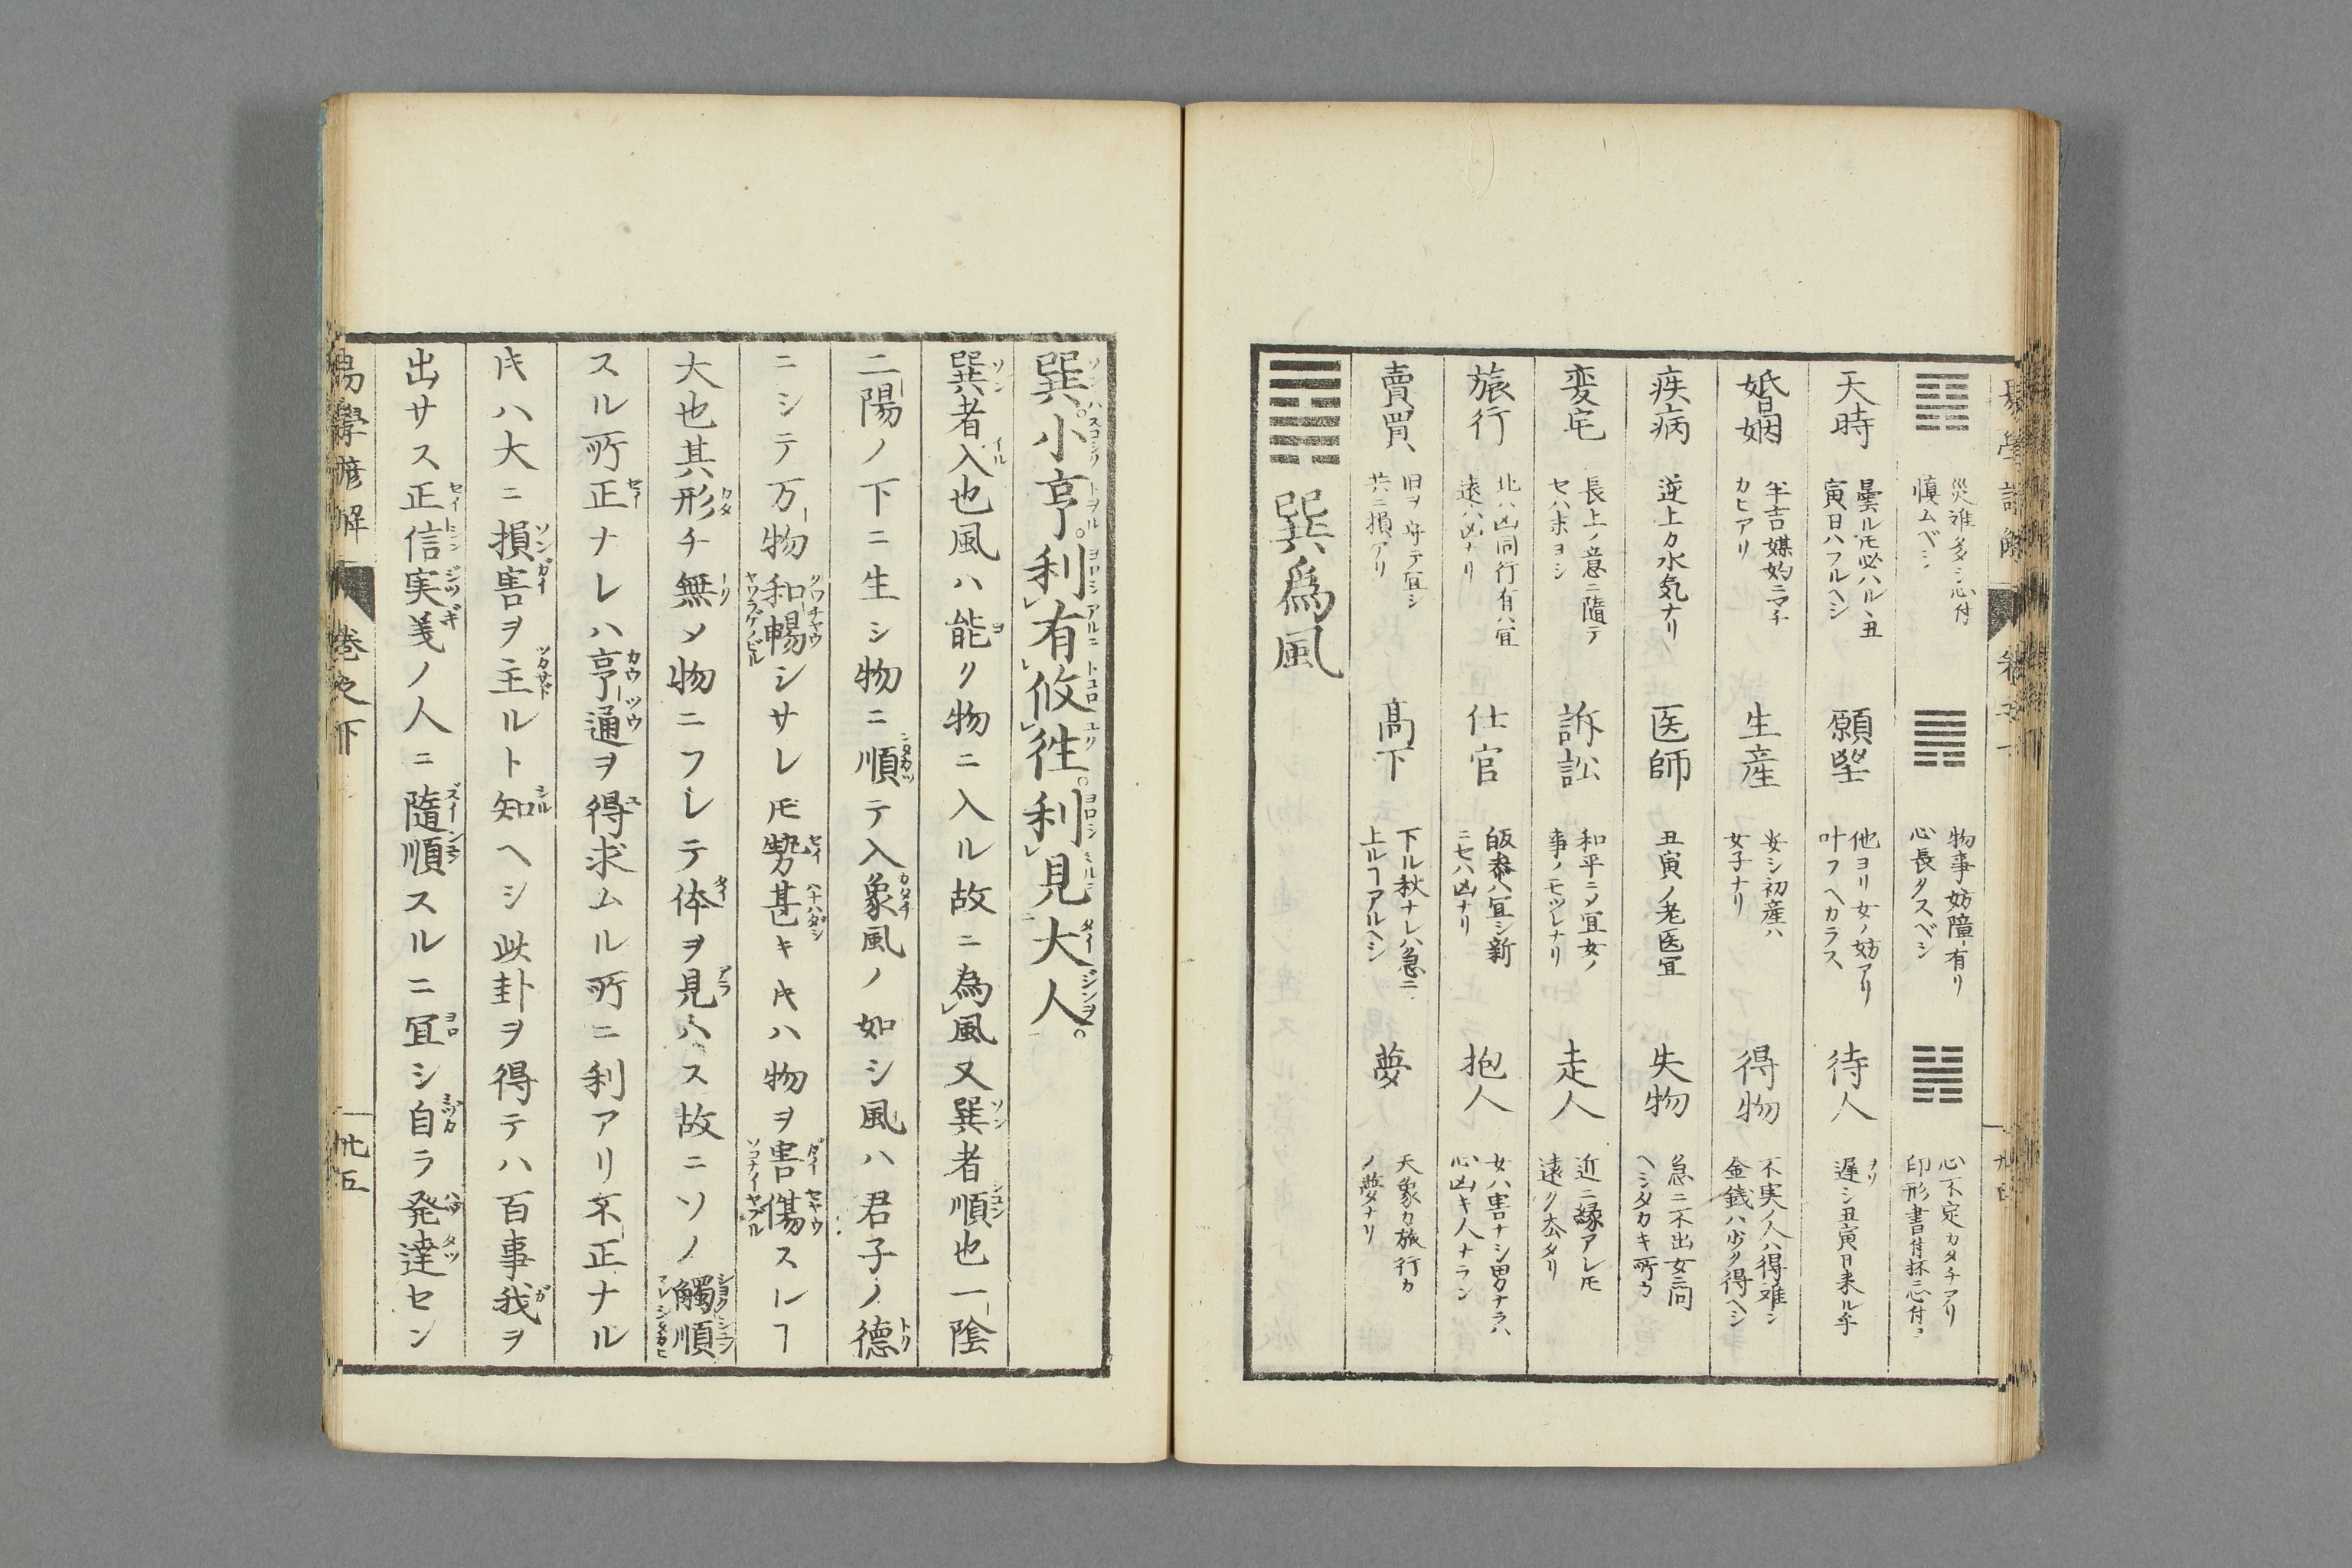 災难多シ心付
慎ムベシ
物事妨障有リ
心長タスベシ
心不定カタチアリ
印形書付抔心付ヨ
天時
曇ルモ必ハル丶丑
寅日ハフルヘシ
願望
他ヨリ女ノ妨アリ
叶フヘカラス
待人
遅シ丑寅日来ル乎
婚姻
半吉媒妁ニマチ
カヒアリ
生産
安シ初産ハ
女子ナリ
得物
不実ノ人ハ得难シ
金銭ハ少ク得ヘシ
疾病
逆上カ水気ナリ
医師
丑寅ノ老医宜
失物
急ニ不出女ニ问
ヘシタカキ所カ
変宅
長上ノ意ニ隨テ
セハ末ヨシ
訴訟
和平ニメ宜女ノ
事ノモツレナリ
走人
近ニ縁アレモ
遠ク去タリ
旅行
北ハ凶同行有ハ宜
遠ハ凶ナリ
仕官
皈参ハ宜シ新
ニセハ凶ナリ
抱人
女ハ害ナシ男ナラハ
心凶キ人ナラン
賣買
旧ヲ守テ宜シ
共ニ損アリ
高下
下ル秋ナレハ急ニ
上ルヿアルヘシ
夢
天象カ旅行カ
ノ夢ナリ
巽為風
巽。小亨。利有攸往。利見大人。
巽者入也風ハ能ク物ニ入ル故ニ為風又巽者順也一陰
二陽ノ下ニ生シ物ニ順テ入象風ノ如シ風ハ君子ノ德
ニシテ万物和暢シサレモ勢甚キキハ物ヲ害傷スレヿ
大也其形チ無メ物ニフレテ体ヲ見ハス故ニソノ觸順
スル所正ナレハ亨通ヲ得求ムル所ニ利アリ不正ナル
キハ大ニ損害ヲ主ルト知ヘシ此卦ヲ得テハ百事我ヲ
出サス正信実義ノ人ニ隨順スルニ宜シ自ラ発達セン
易學諺解
巻之下
卅五